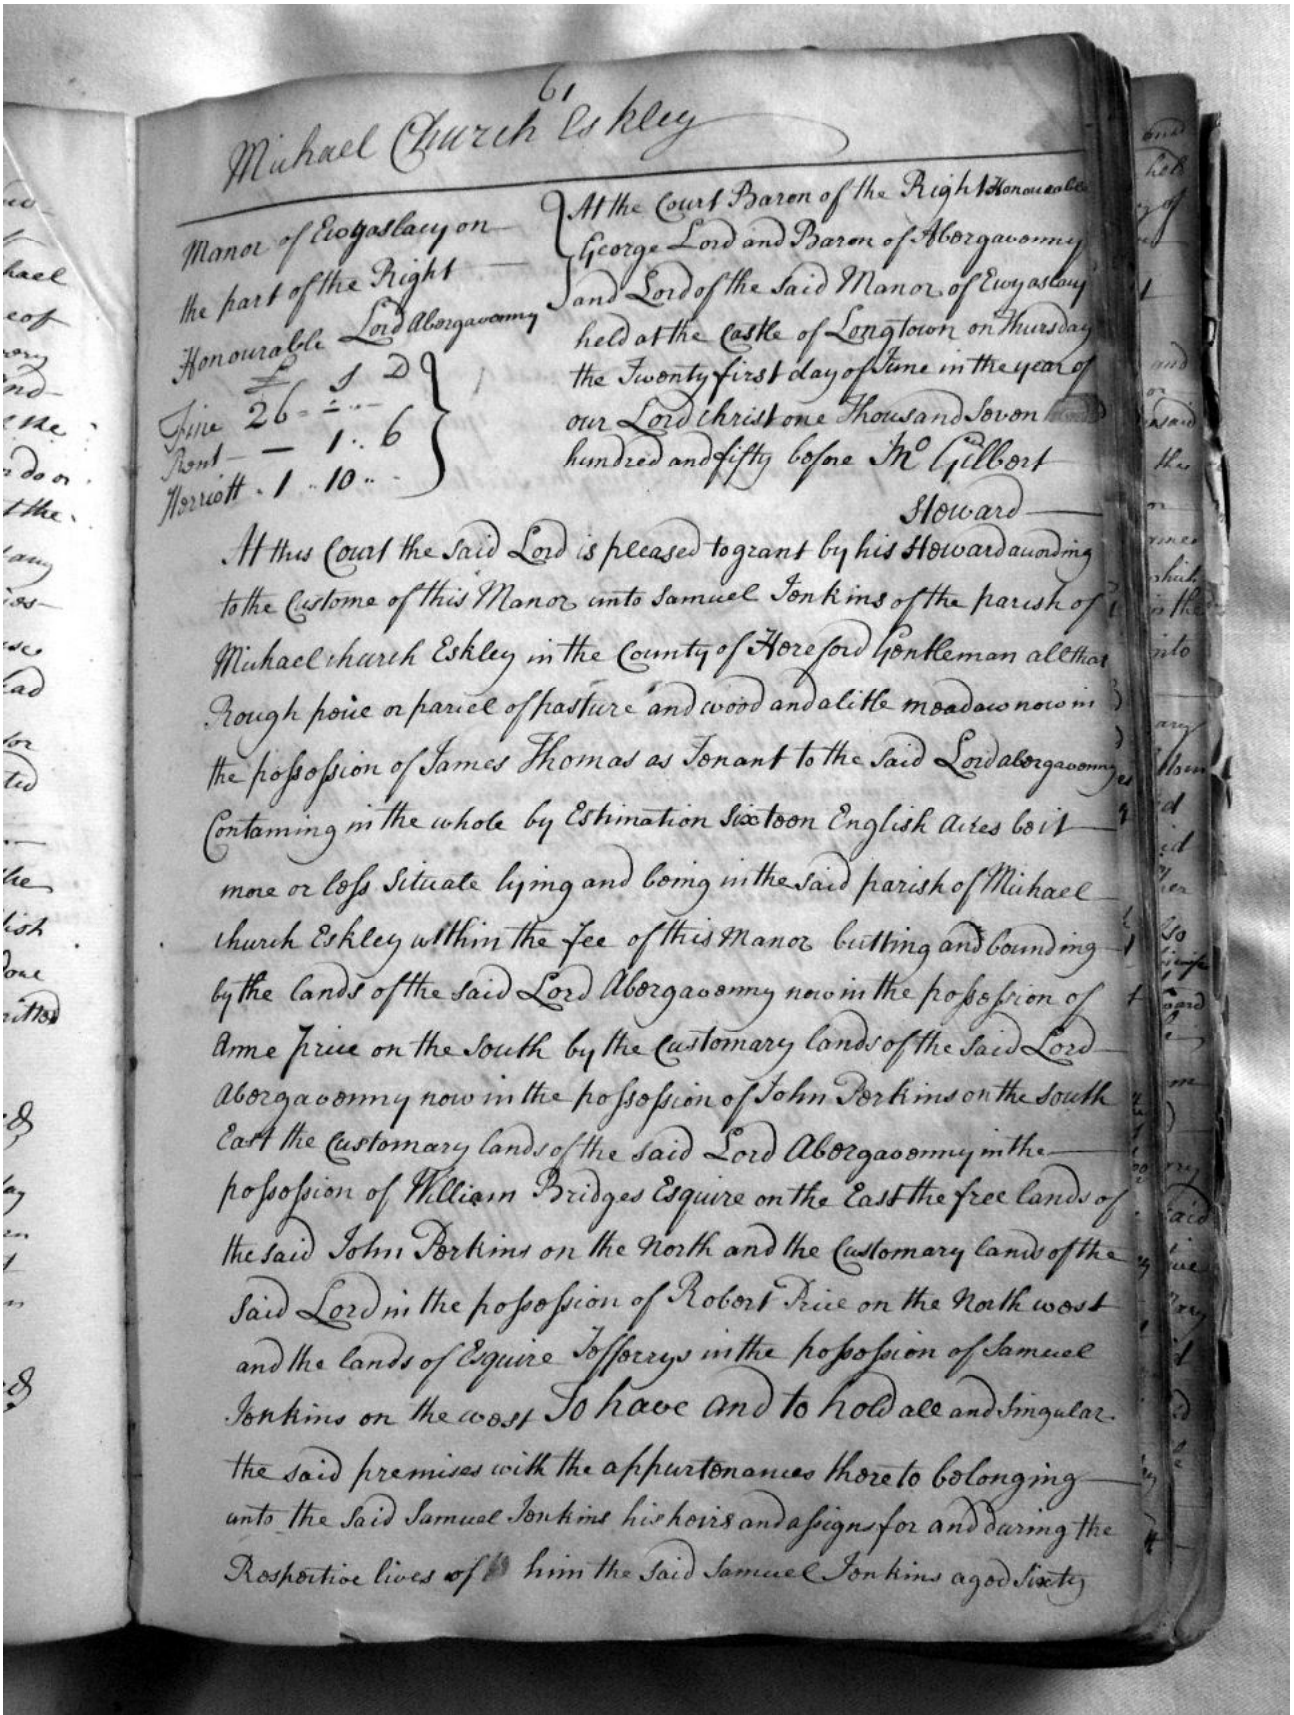 61
Michael Church Eskley
Manor of Ewyaslacy on
the part of the Right
Honourable Lord Abergavenny
£ S D
Fine 26 - -
Rent - 1 .. 6
Herriott . 1 .. 10 ..
At the Court Baron of the Right Honourable
George Lord and Baron of Abergavenny
and Lord of the said Manor of Ewyaslacy
held at the Castle of Longtown on Thursday
the Twenty first day of June in the year of
our Lord Christ one Thousand Seven
hundred and fifty before Mr Gilbert
Steward
At this Court the said Lord is pleased to grant by his Steward according
to the Custome of this Manor unto Samuel Jenkins of the parish of
Michaelchurch Eskley in the County of Hereford Gentleman all that
Rough peice or parcel of pasture and wood and a litle meadow now in
the possession of James Thomas as Tenant to the said Lord abergavenny
Containing in the whole by Estimation Sixteen English Acres be it
more or less Situate lying and being in the said parish of Michael
church Eskley within the Fee of this Manor butting and bounding
by the lands of the said Lord Abergavenny now in the possession of
Anne Price on the South by the Customary lands of the said Lord
Abergavenny now in the possession of John Perkins on the South
East the Customary lands of the said Lord Abergavenny in the
possession of William Bridges Esquire on the East the free lands of
the said John Perkins on the North and the Customary lands of the
said Lord in the possession of Robert Price on the North west
and the lands of Esquire Jefferys in the possession of Samuel
Jenkins on the west To have and to hold all and Singular
the said premises with the appurtenances thereto belonging
unto the said Samuel Jenkins his heirs and assigns for and during the
Respective lives of him the said Samuel Jenkins aged Sixty